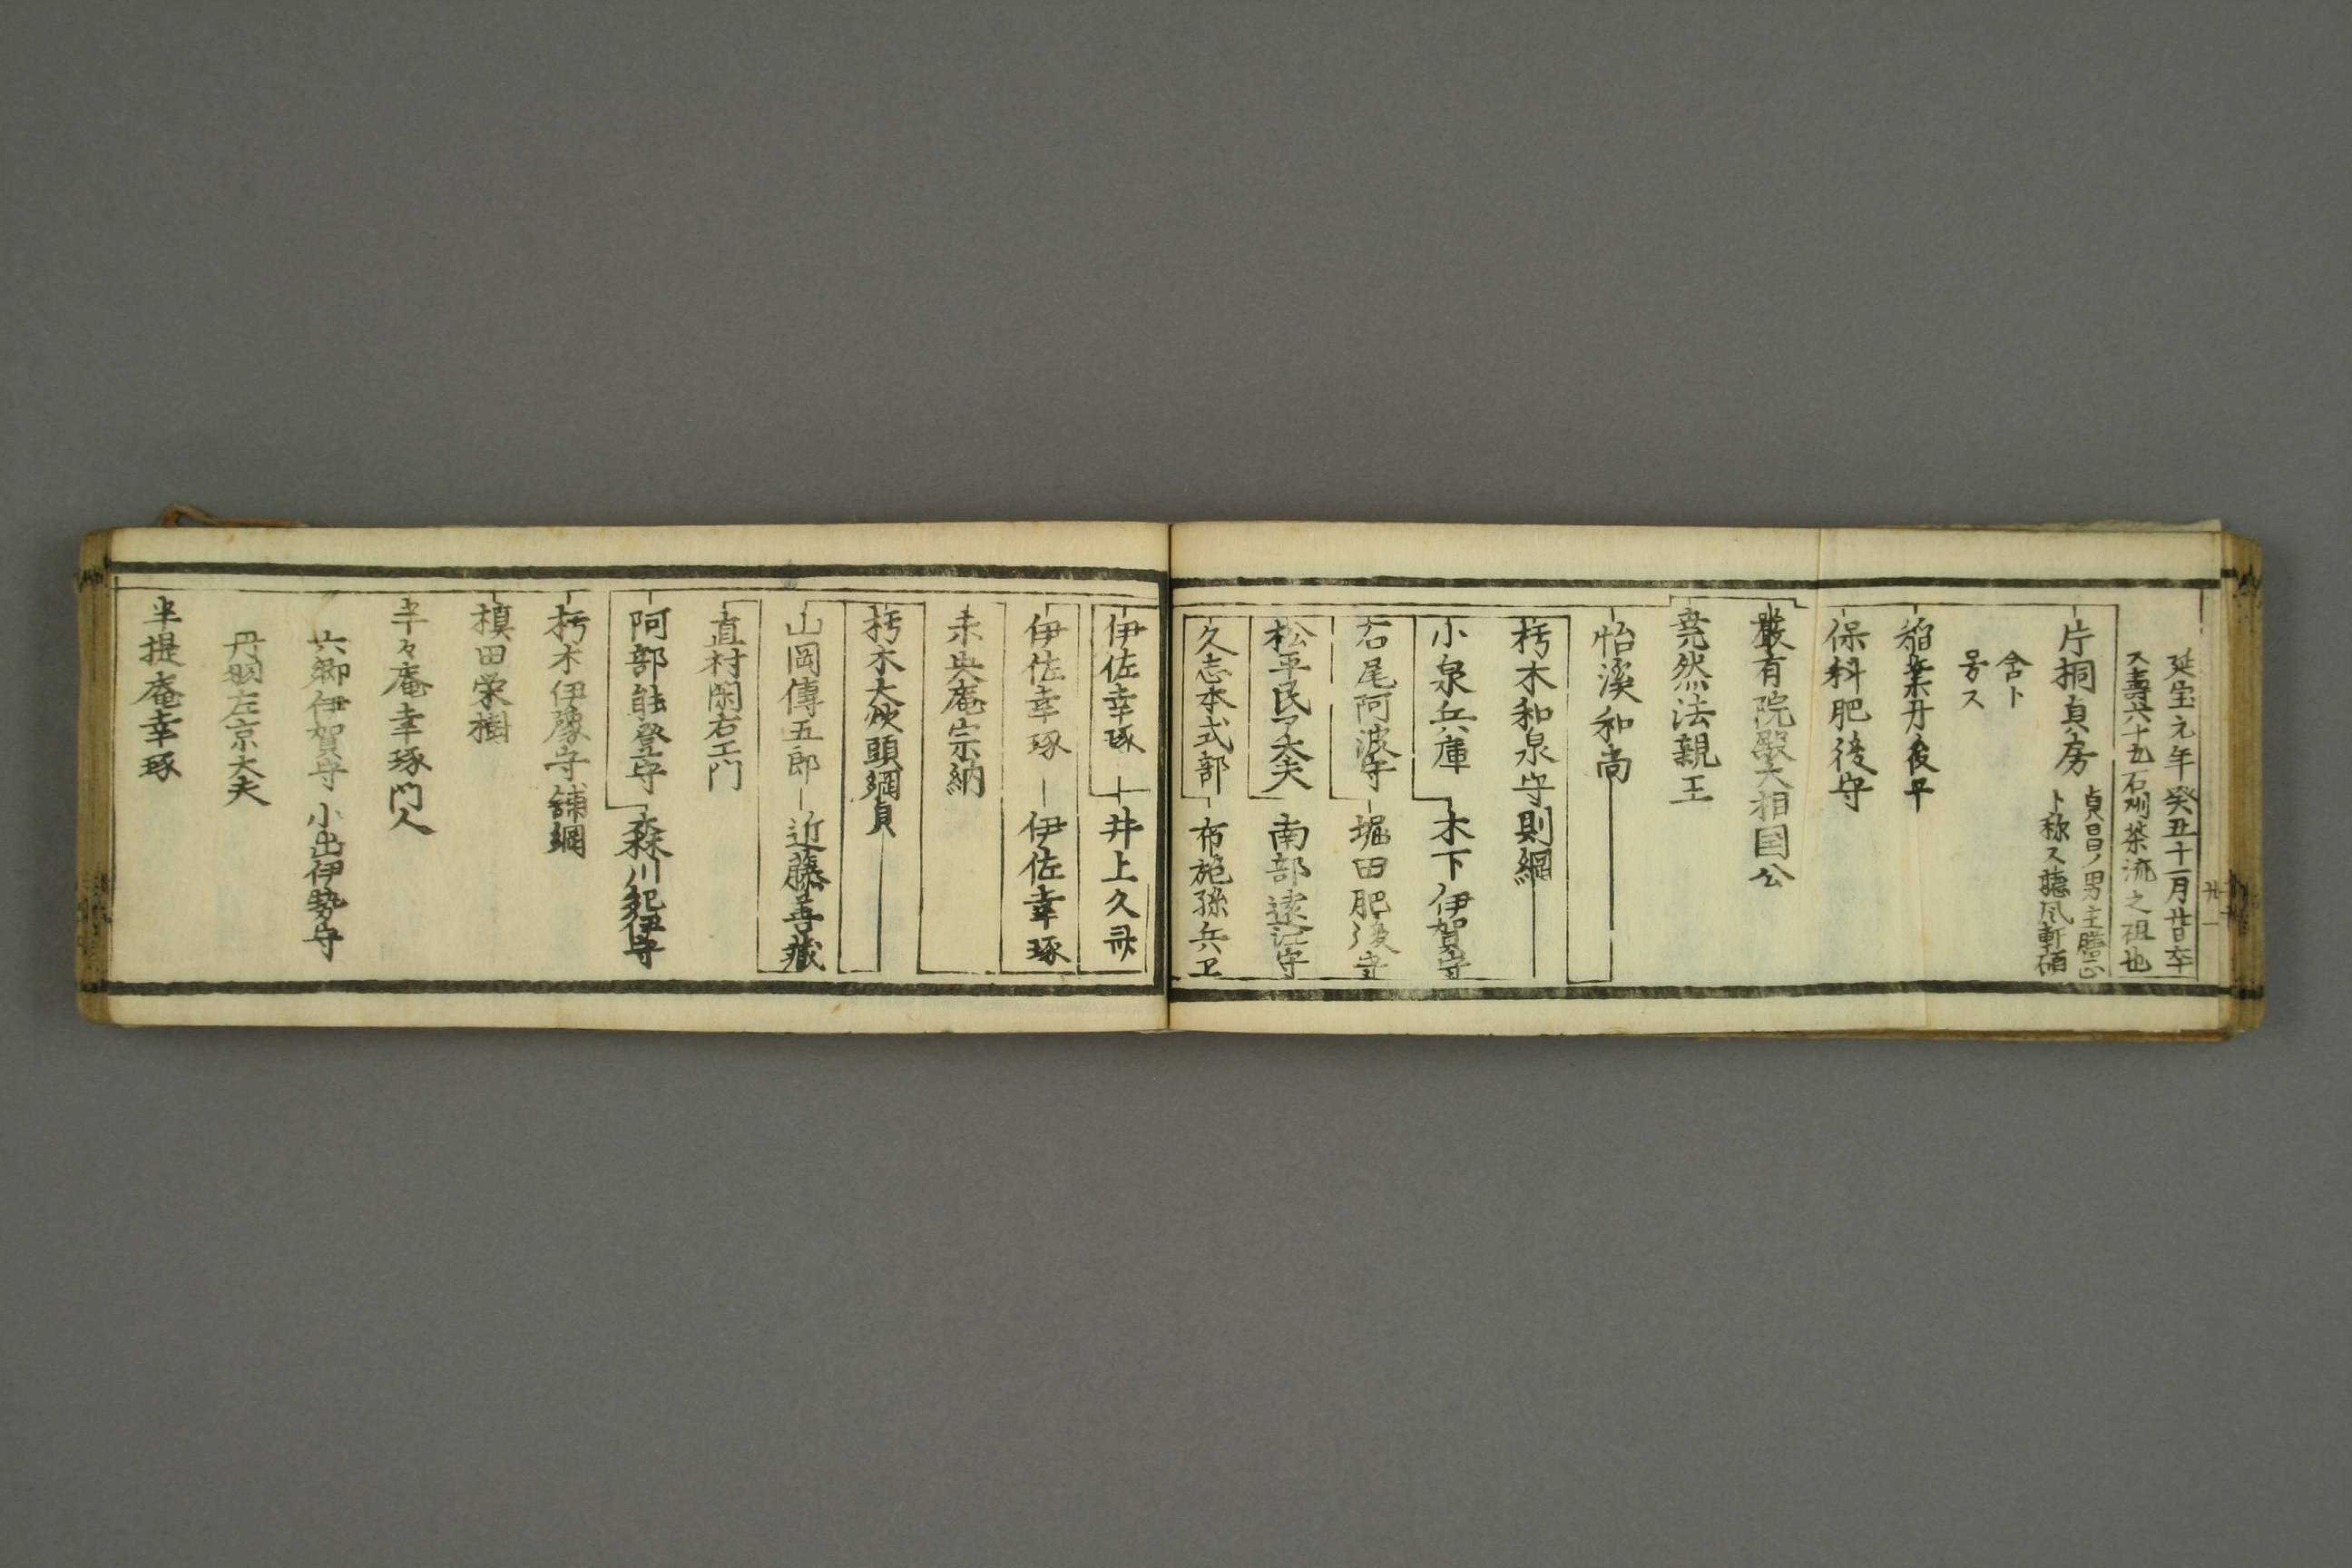 延宝元年癸丑十一月廿日卒
ス壽六十九石州茶流之祖也
片桐貞房
貞昌ノ男主膳正
ト称ス聴風軒碩
舎ト
号ス
稲葉丹後守
保科肥後守
嚴有院殿大相国公
堯然法親王
怡溪和尚
朽木和泉守則綱
小泉兵庫
木下伊賀守
石尾阿波守
堀田肥後守
松平民ア大夫
南部遠江守
久志本式部
布施孫兵卫
伊佐幸琢
井上久弥
伊佐幸琢
伊佐幸琢
未央庵宗納
朽木大炊頭綱貞
山岡傳五郎
近藤善藏
直村閑右エ門
阿部能登守
森川紀伊守
朽木伊豫守舗綱
横田栄樹
半々庵幸琢門人
六郷伊賀守
小出伊勢守
丹羽左京大夫
半提庵幸琢